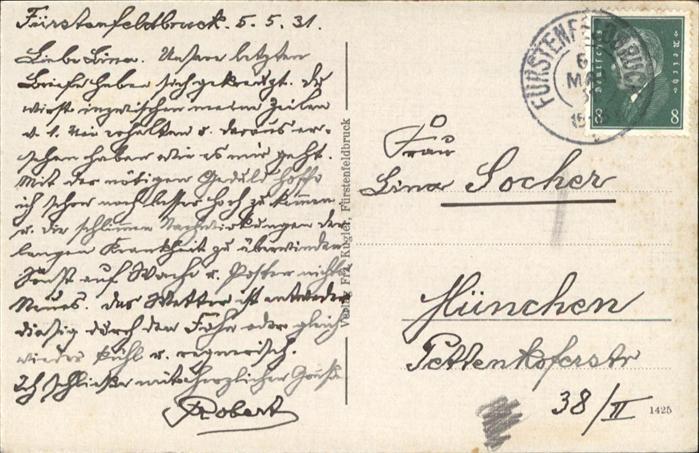 Fürstenfeldbruck. 5. 5. 31.
Liebe Lina. Unsere letzten
Briefe haben sich gekreuzt. Du
wirst inzwischen meine Zeilen
v. 1. Mai erhalten u. daraus er-
sehen haben wie es mir geht.
Mit der nötigen Geduld hoffe
ich schon noch besser hoch zu kommen
u. die schlimmen Nachwirkungen der
langen Krankheit zu überwinden
Sonst auf Wache u. Posten nichts
Neues. Das Wetter ist entweder
diesig durch den Föhn oder gleich
wieder kühl u. regnerisch.
Ich schließe mit herzlicher Grüße
Robert
Verlag Frz. Kugler, Fürstenfeldbruck
FÜRSTENFELDBRUCK
6
MAI
Deutsches Reich
8 8
Frau
Lina Socher
München
Pettenkoferstr
38/II
1425